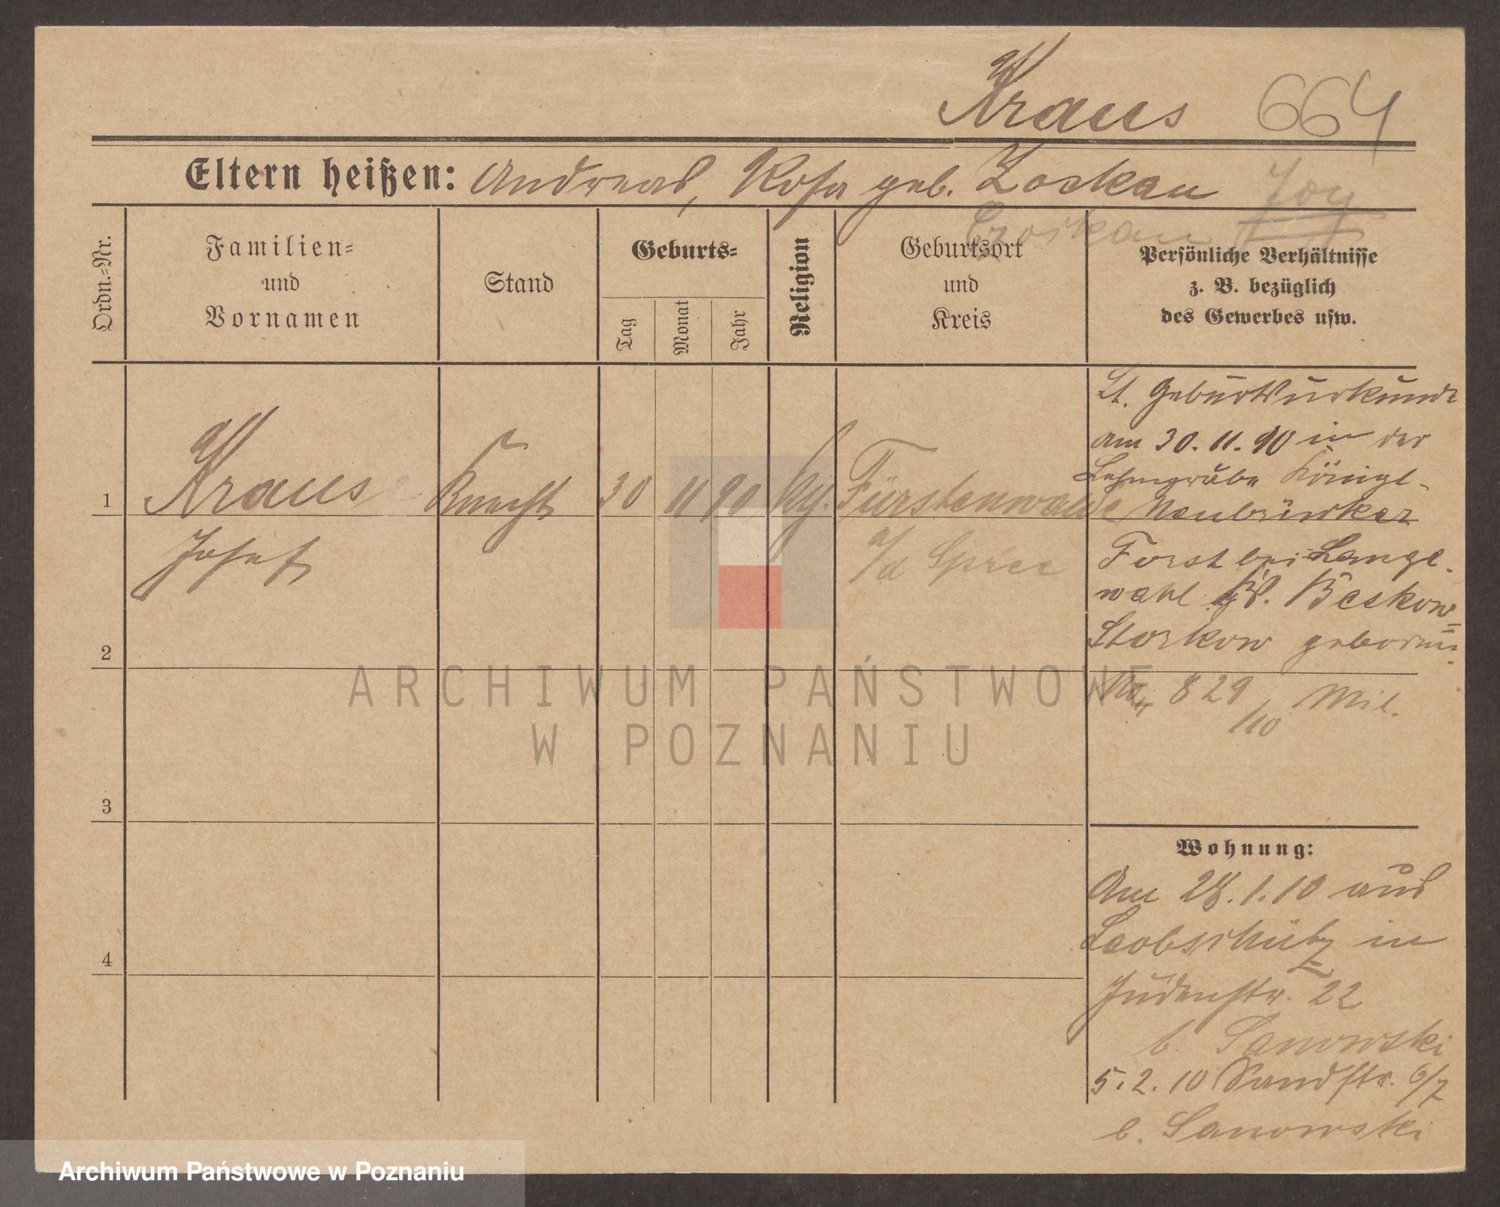 Kraus 664
Eltern heißen: Andreas, Rosa geb. Zoskau
Czoskau
Ordn.-Nr.
Familien-
und
Vornamen
Stand
Geburts-
Tag
Monat
Jahr
Religion
Geburtsort
und
Kreis
Persönliche Verhältnisse
z. B. bezüglich
des Gewerbes usw.
1
Kraus
Josef
Knecht
30 11 90
Fürstenwalde
a/d Spree
Lt. Geburtsurkunde
am 30. 11. 90 in der
Lehmgrube Königl.
Neubrücker
Forst bei Langewahl
Kr. Beskow-
Storkow geboren.
829/10 Mil.
2
3
4
Wohnung:
Am 28.1.10 aus
Leobschütz in
Judenstr. 22
b. Sanowski
5.2.10 Sandstr. 6/7
b. Sanowski
ARCHIWUM PAŃSTWOWE
W POZNANIU
Archiwum Państwowe w Poznaniu